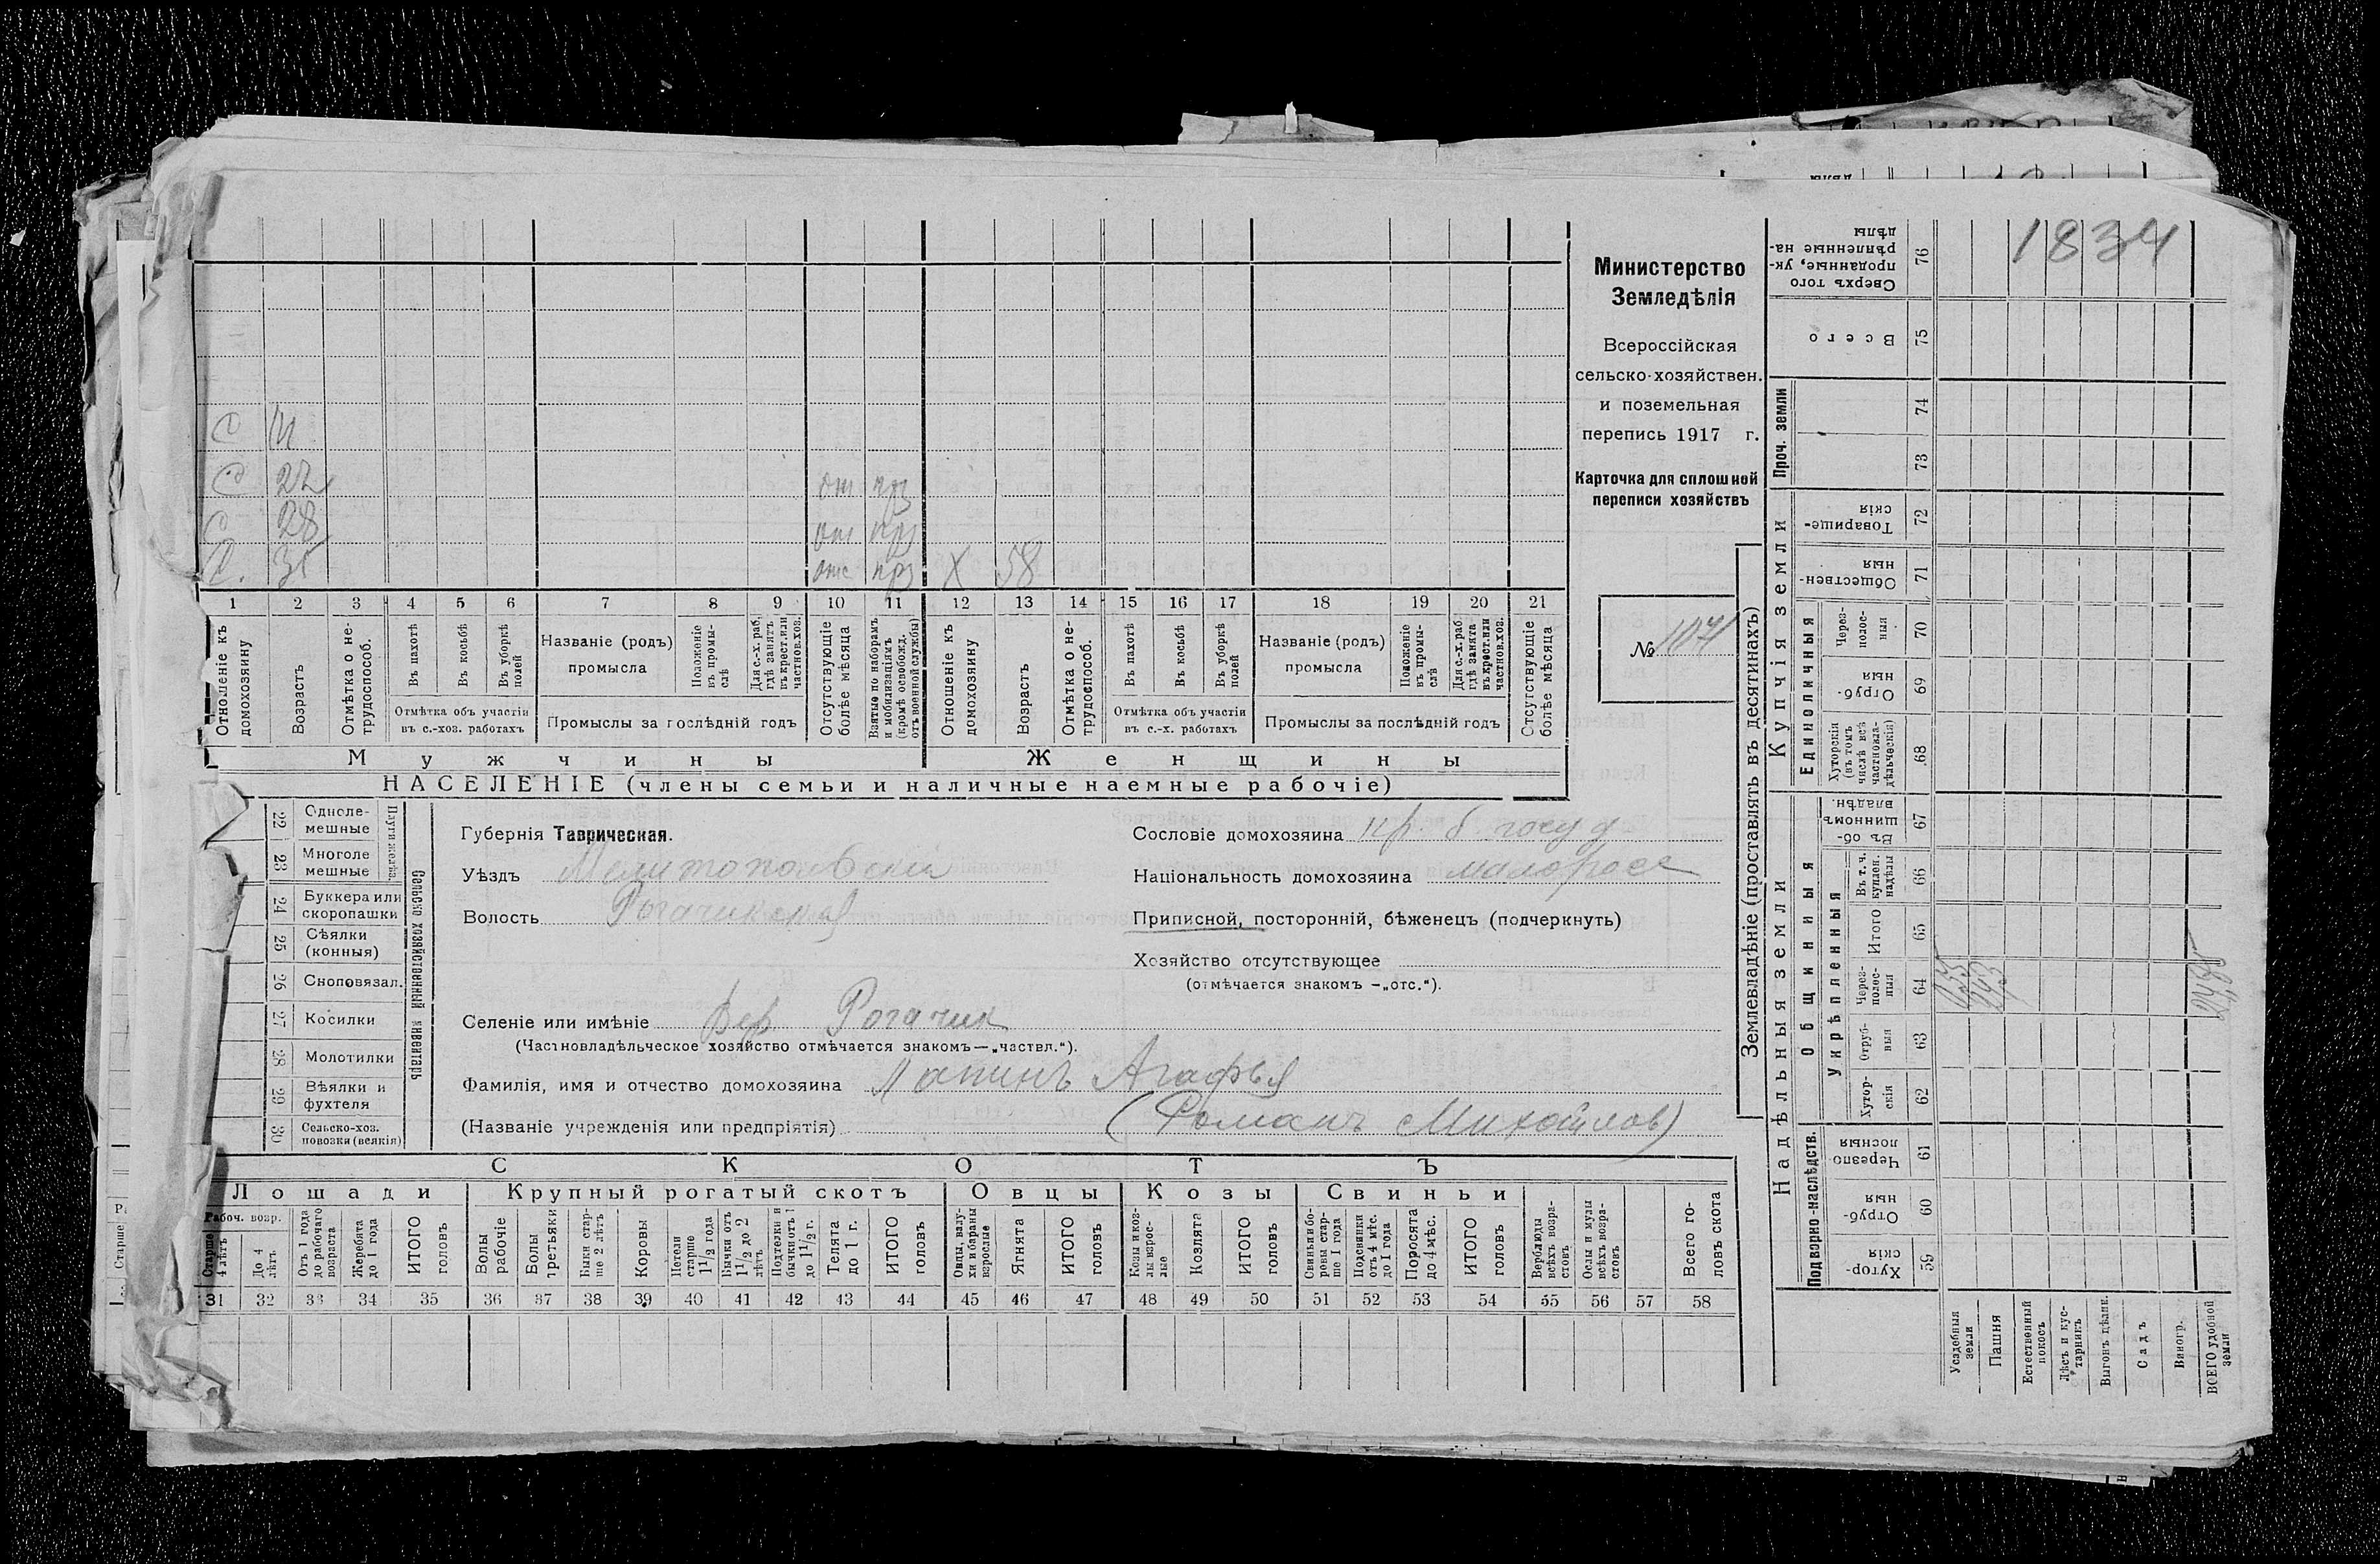 1834
Министерство
Земледѣлія
Всероссійская
сельско-хозяйствен.
и поземельная
перепись 1917 г.
Карточка для сплошной
переписи хозяйствъ
№ 1071
С
С 22 от прз
С 28 от прз
С. отс прз Х 58
1 2 3 4 5 6 7 8 9 10 11 12 13 14 15 16 17 18 19 20 21
Отношеніе къ домохозяину
Возрастъ
Отмѣтка о не-трудоспособ.
Въ пахотѣ
Въ косьбѣ
Въ уборкѣ полей
Отмѣтка объ участіи
въ с.-хоз. работахъ
Названіе (родъ)
промысла
Положеніе въ промы-слѣ
Для с.-х. раб. гдѣ занятъ въ крест. или частнов. хоз.
Промыслы за послѣдній годъ
Отсутствующіе болѣе мѣсяца
Взятые по наборамъ и мобилизаціямъ (кромѣ освобожд. отъ военной службы)
Отношеніе къ домохозяину
Возрастъ
Отмѣтка о не-трудоспособ.
Въ пахотѣ
Въ косьбѣ
Въ уборкѣ полей
Отмѣтка объ участіи
въ с.-х. работахъ
Названіе (родъ)
промысла
Положеніе въ промы-слѣ
Для с.-х. раб. гдѣ занята въ крест. или частнов. хоз.
Промыслы за послѣдній годъ
Отсутствующіе болѣе мѣсяца
Мужчины Женщины
НАСЕЛЕНІЕ (члены семьи и наличные наемные рабочіе)
Сельско хозяйственный инвентарь
22 Одноле-мешные
23 Многоле мешные
24 Буккера или скоропашки
25 Сѣялки (конныя)
26 Сноповязал.
27 Косилки
28 Молотилки
29 Вѣялки и фухтеля
30 Сельско-хоз. повозки (всякія)
Губернія Таврическая.
Уѣздъ Мелитопольскій
Волость Рогачикская
Сословіе домохозяина кр. б. госуд
Національность домохозяина малоросс
Приписной, посторонній, бѣженецъ (подчеркнуть)
Хозяйство отсутствующее
(отмѣчается знакомъ -„отс.“).
Селеніе или имѣніе Вер Рогачик
(Частновладѣльческое хозяйство отмѣчается знакомъ—„частвл.“).
Фамилія, имя и отчество домохозяина Лапинъ Агафья
(Названіе учрежденія или предпріятія) (Романъ Михайлов)
СКОТЪ
Лошади Крупный рогатый скотъ Овцы Козы Свиньи
Рабоч. возр.
Старше 4 лѣтъ
До 4 лѣтъ
Отъ 1 года до рабочаго возраста
Жеребята до 1 года
ИТОГО головъ
Волы рабочіе
Волы третьяки
Быки стар-ше 2 лѣтъ
Коровы
Нетели старше 1 1/2 года
Бычки отъ 1 1/2 до 2 лѣтъ
Подтелки и бычки отъ 1 до 1 1/2 г.
Телята до 1 г.
ИТОГО головъ
Овцы, валу-хи и бараны взрослые
Ягнята
ИТОГО головъ
Козы и коз-лы взрос-лые
Козлята
ИТОГО головъ
Свиньи и бо-ровы стар-ше 1 года
Подсвинки отъ 4 мѣс. до 1 года
Поросята до 4 мѣс.
ИТОГО головъ
Верблюды всѣхъ возра-стовъ
Ослы и мулы всѣхъ возра-стовъ
Всего го-ловъ скота
31 32 33 34 35 36 37 38 39 40 41 42 43 44 45 46 47 48 49 50 51 52 53 54 55 56 57 58
Землевладѣніе (проставлять въ десятинахъ)
Надѣльныя земли
Купчія земли
Проч. земли
Подворно-наслѣдств.
Общинныя
Укрѣпленныя
Единоличныя
Хутор-скія 59
Отруб-ныя 60
Черезпо-лосныя 61
Хутор-скія 62
Отруб-ныя 63
Через-полос-ныя 64
Итого 65
Въ т. ч. куплен. надѣлы 66
Въ об-щинномъ владѣн. 67
Хуторскія (въ томъ числѣ всѣ частновла-дѣльческія) 68
Отруб-ныя 69
Через-полос-ныя 70
Обществен-ныя 71
Товарище-скія 72
73
74
Всего 75
Сверхъ того проданные, ук-рѣпленные на-дѣлы 76
Усадебныя земли
Пашня
Естественный покосъ
Лѣсъ и кус-тарникъ
Выгонъ цѣлик.
Садъ
Виногр.
ВСЕГО удобной земли